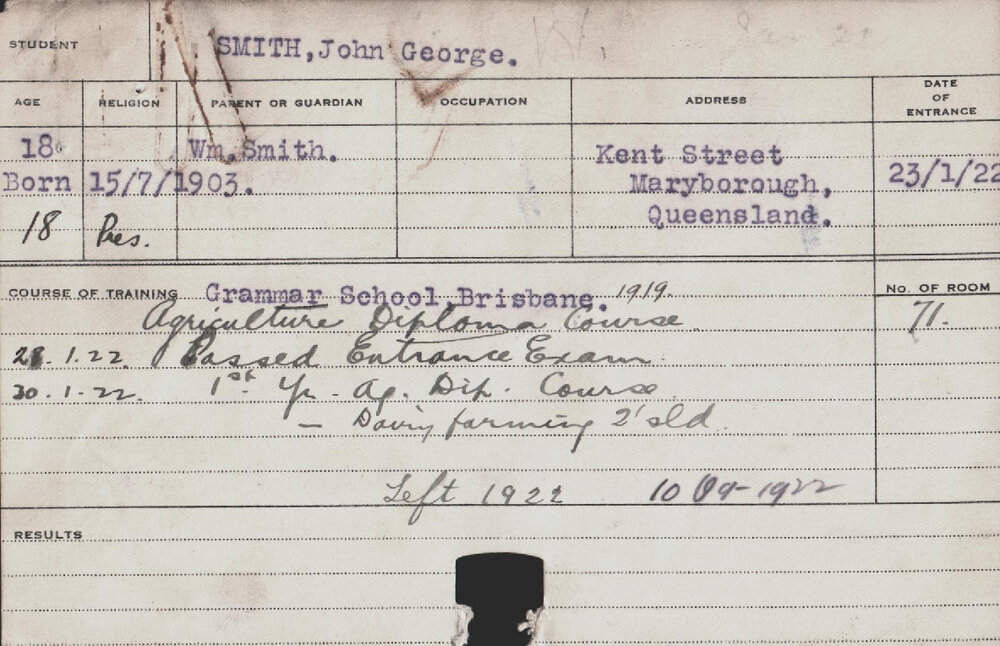 STUDENT SMITH, John George.
AGE RELIGION PARENT OR GUARDIAN OCCUPATION ADDRESS DATE OF ENTRANCE
18 Wm. Smith. Kent Street
Born 15/7/1903. Maryborough, 23/1/22
18 Pres. Queensland.
COURSE OF TRAINING Grammar School, Brisbane. 1919. No. OF ROOM
Agriculture Diploma Course 71.
28.1.22 Passed Entrance Exam
30.1.22. 1st Yr. Ag. Dip. Course
— Dairy farming
Left 1922 10 1922
RESULTS